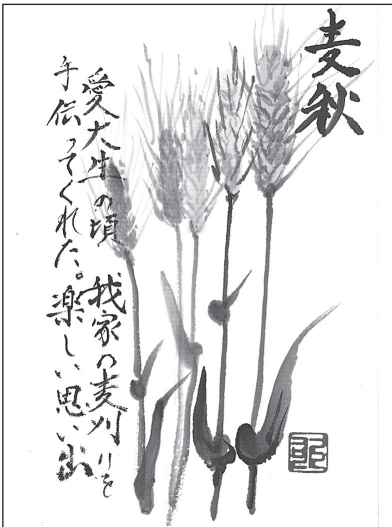 麦秋
愛大生の頃 我家の麦刈りを
手伝ってくれた。楽しい思い出